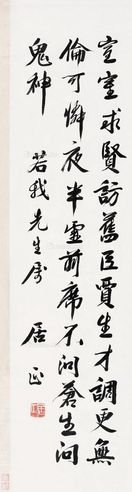 宣室求賢訪舊臣賈生才調更無
倫可憐夜半虛前席不問蒼生問
鬼神　若我先生屬　居正